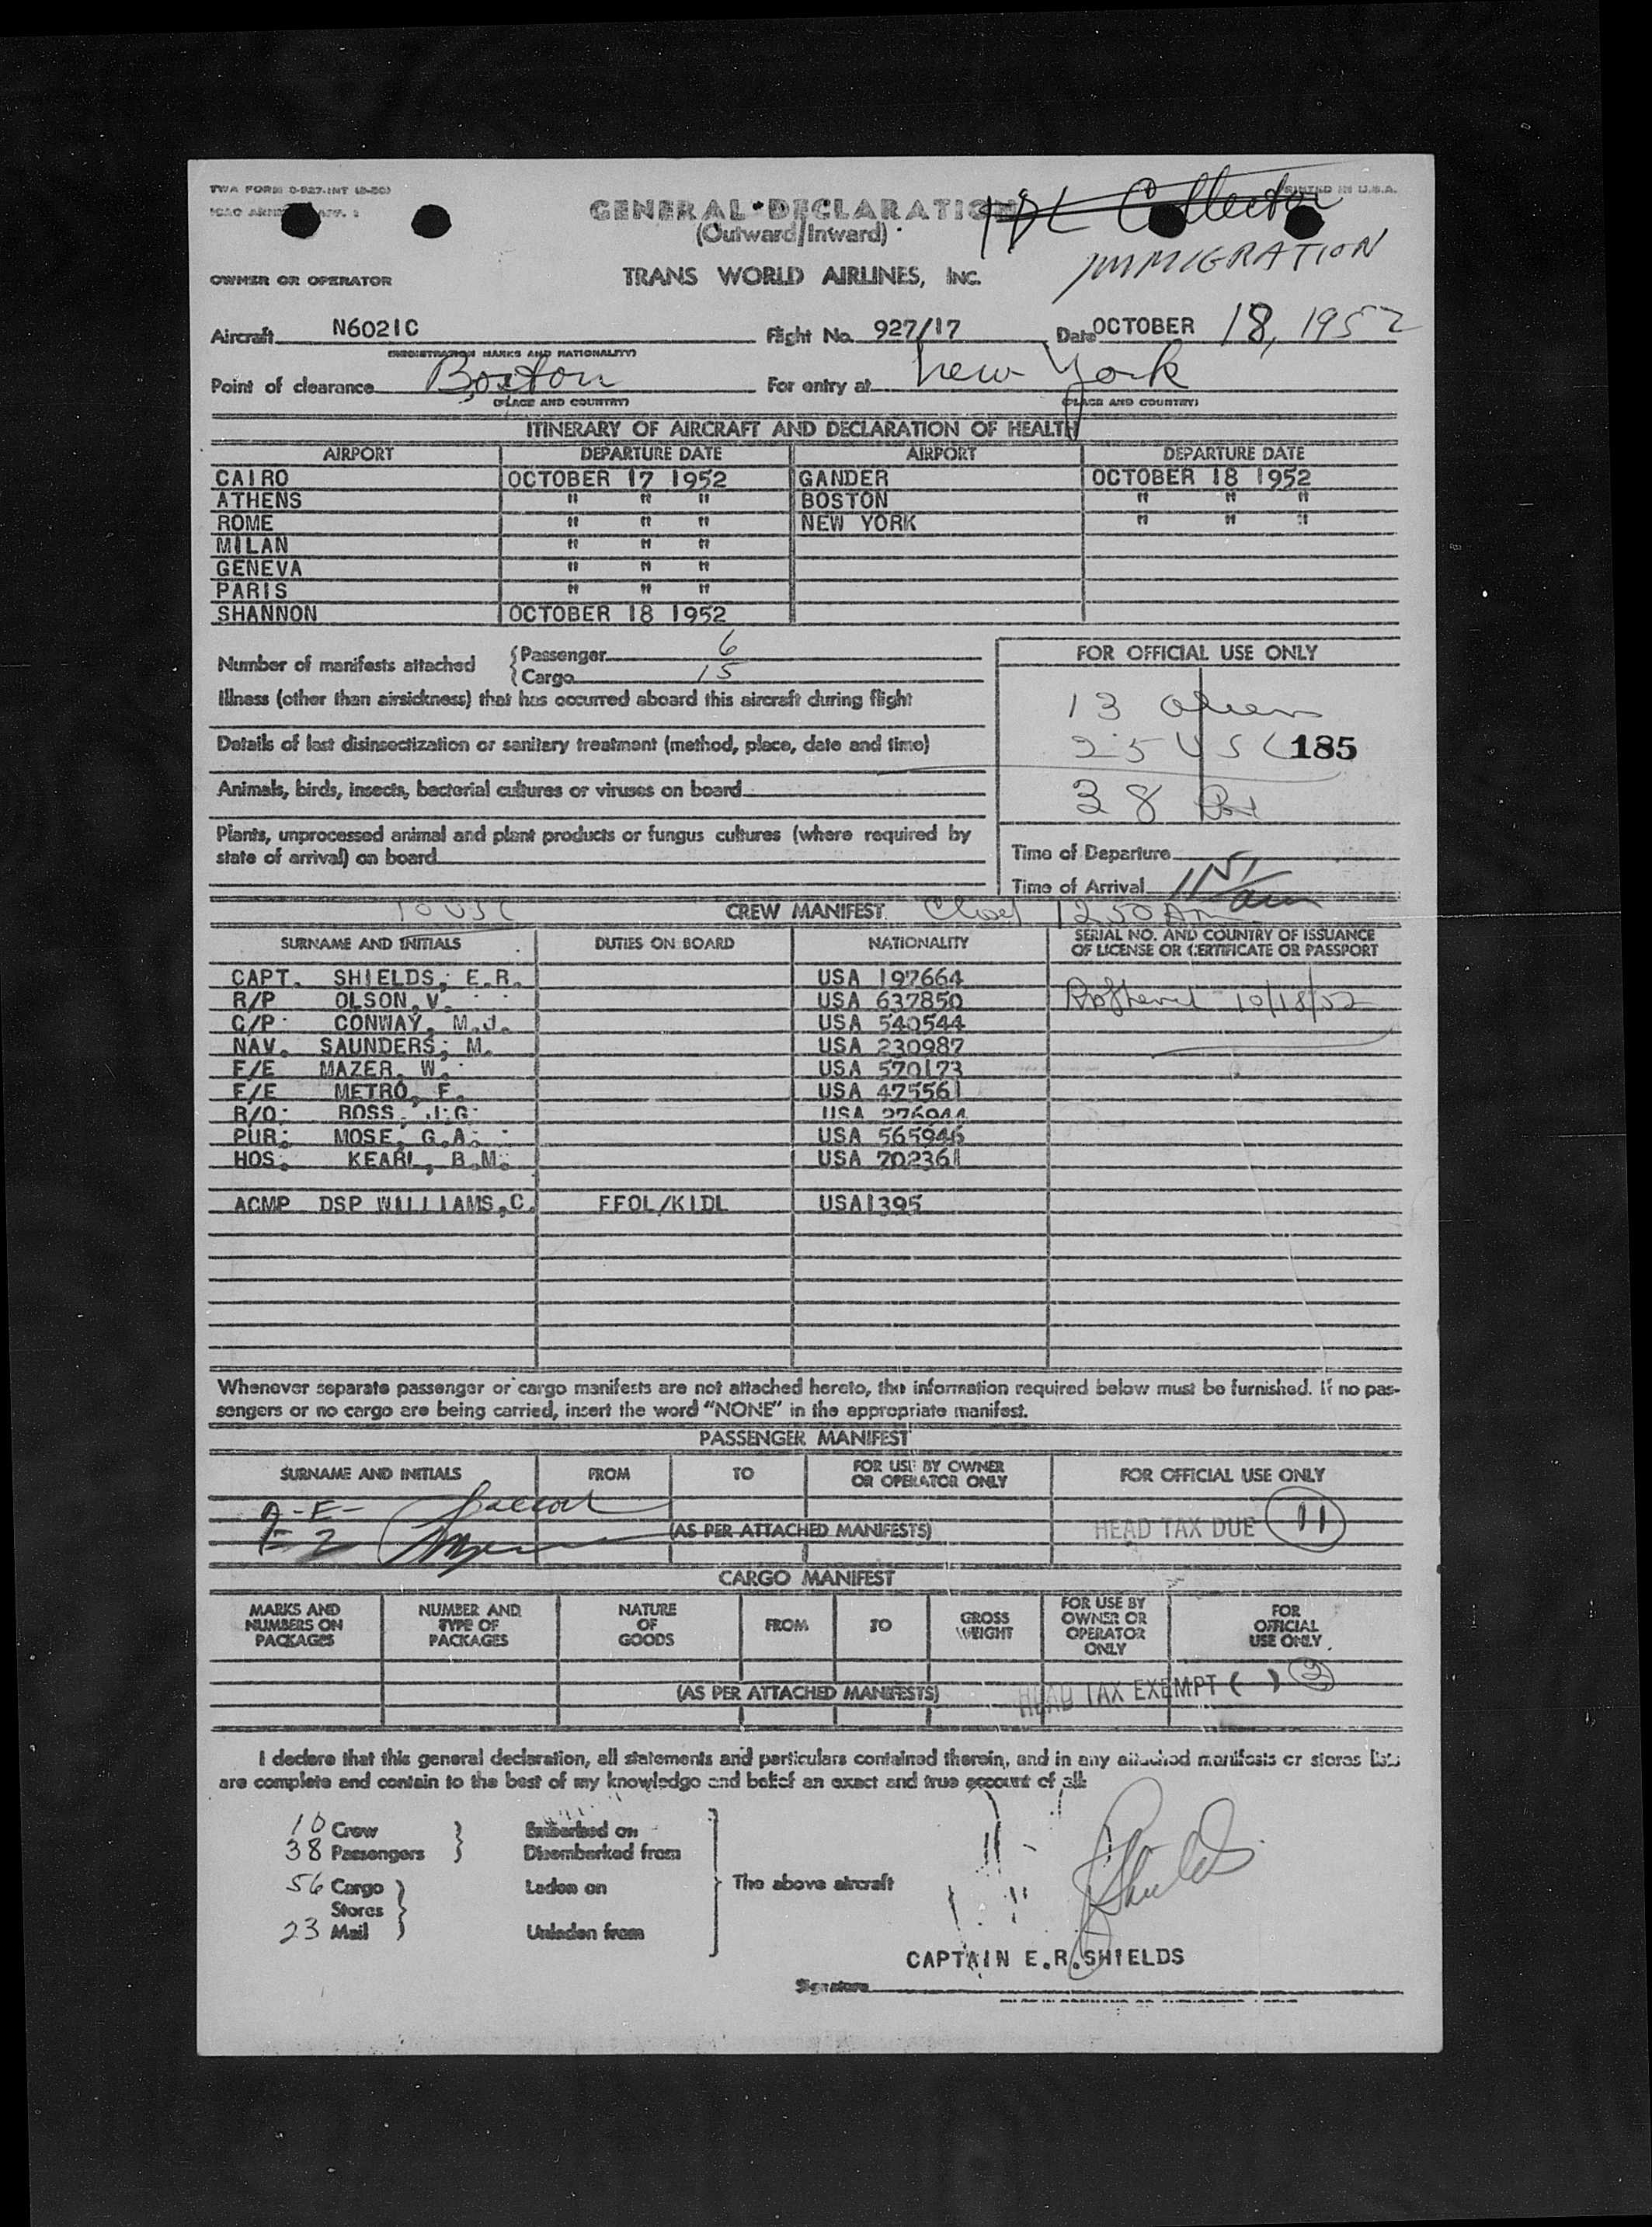 TWA FORM O-927-INT (8-50)
PRINTED IN U.S.A.
GENERAL DECLARATION
Collector
(Outward/Inward)
IMMIGRATION
OWNER OR OPERATOR TRANS WORLD AIRLINES, INC.
Aircraft N6021C Flight No. 927/17 Date OCTOBER 18, 1952
(REGISTRATION MARKS AND NATIONALITY)
Point of clearance Boston For entry at New York
(PLACE AND COUNTRY) (PLACE AND COUNTRY)
ITINERARY OF AIRCRAFT AND DECLARATION OF HEALTH
AIRPORT DEPARTURE DATE AIRPORT DEPARTURE DATE
CAIRO OCTOBER 17 1952 GANDER OCTOBER 18 1952
ATHENS " " " BOSTON " " "
ROME " " " NEW YORK " " "
MILAN " " "
GENEVA " " "
PARIS " " "
SHANNON OCTOBER 18 1952
Number of manifests attached
Passenger 6
Cargo 15
FOR OFFICIAL USE ONLY
Illness (other than airsickness) that has occurred aboard this aircraft during flight
13 aliens
Details of last disinsectization or sanitary treatment (method, place, date and time)
25 USC 185
Animals, birds, insects, bacterial cultures or viruses on board
38
Plants, unprocessed animal and plant products or fungus cultures (where required by
state of arrival) on board
Time of Departure
Time of Arrival
10 USC CREW MANIFEST 1250 AM
SURNAME AND INITIALS DUTIES ON BOARD NATIONALITY SERIAL NO. AND COUNTRY OF ISSUANCE
OF LICENSE OR CERTIFICATE OR PASSPORT
CAPT. SHIELDS, E.R. USA 197664
R/P OLSON, V. USA 637850 10/18/52
C/P CONWAY, M.J. USA 540544
NAV. SAUNDERS, M. USA 230987
F/E MAZER, W. USA 570173
F/E METRO, F. USA 475561
R/O ROSS, J.G. USA 276944
PUR. MOSE, G.A. USA 565946
HOS. KEARL, B.M. USA 702361
ACMP DSP WILLIAMS, C. FFOL/KIDL USA1395
Whenever separate passenger or cargo manifests are not attached hereto, the information required below must be furnished. If no pas-
sengers or no cargo are being carried, insert the word "NONE" in the appropriate manifest.
PASSENGER MANIFEST
SURNAME AND INITIALS FROM TO FOR USE BY OWNER
OR OPERATOR ONLY FOR OFFICIAL USE ONLY
(AS PER ATTACHED MANIFESTS) HEAD TAX DUE 11
CARGO MANIFEST
MARKS AND
NUMBERS ON
PACKAGES
NUMBER AND
TYPE OF
PACKAGES
NATURE
OF
GOODS
FROM
TO
GROSS
WEIGHT
FOR USE BY
OWNER OR
OPERATOR
ONLY
FOR
OFFICIAL
USE ONLY
(AS PER ATTACHED MANIFESTS) HEAD TAX EXEMPT ( ) 2
I declare that this general declaration, all statements and particulars contained therein, and in any attached manifests or stores lists
are complete and contain to the best of my knowledge and belief an exact and true account of all:
10 Crew Embarked on
38 Passengers Disembarked from
56 Cargo Laden on The above aircraft
Stores
23 Mail Unladen from
Shields
CAPTAIN E.R. SHIELDS
Signature